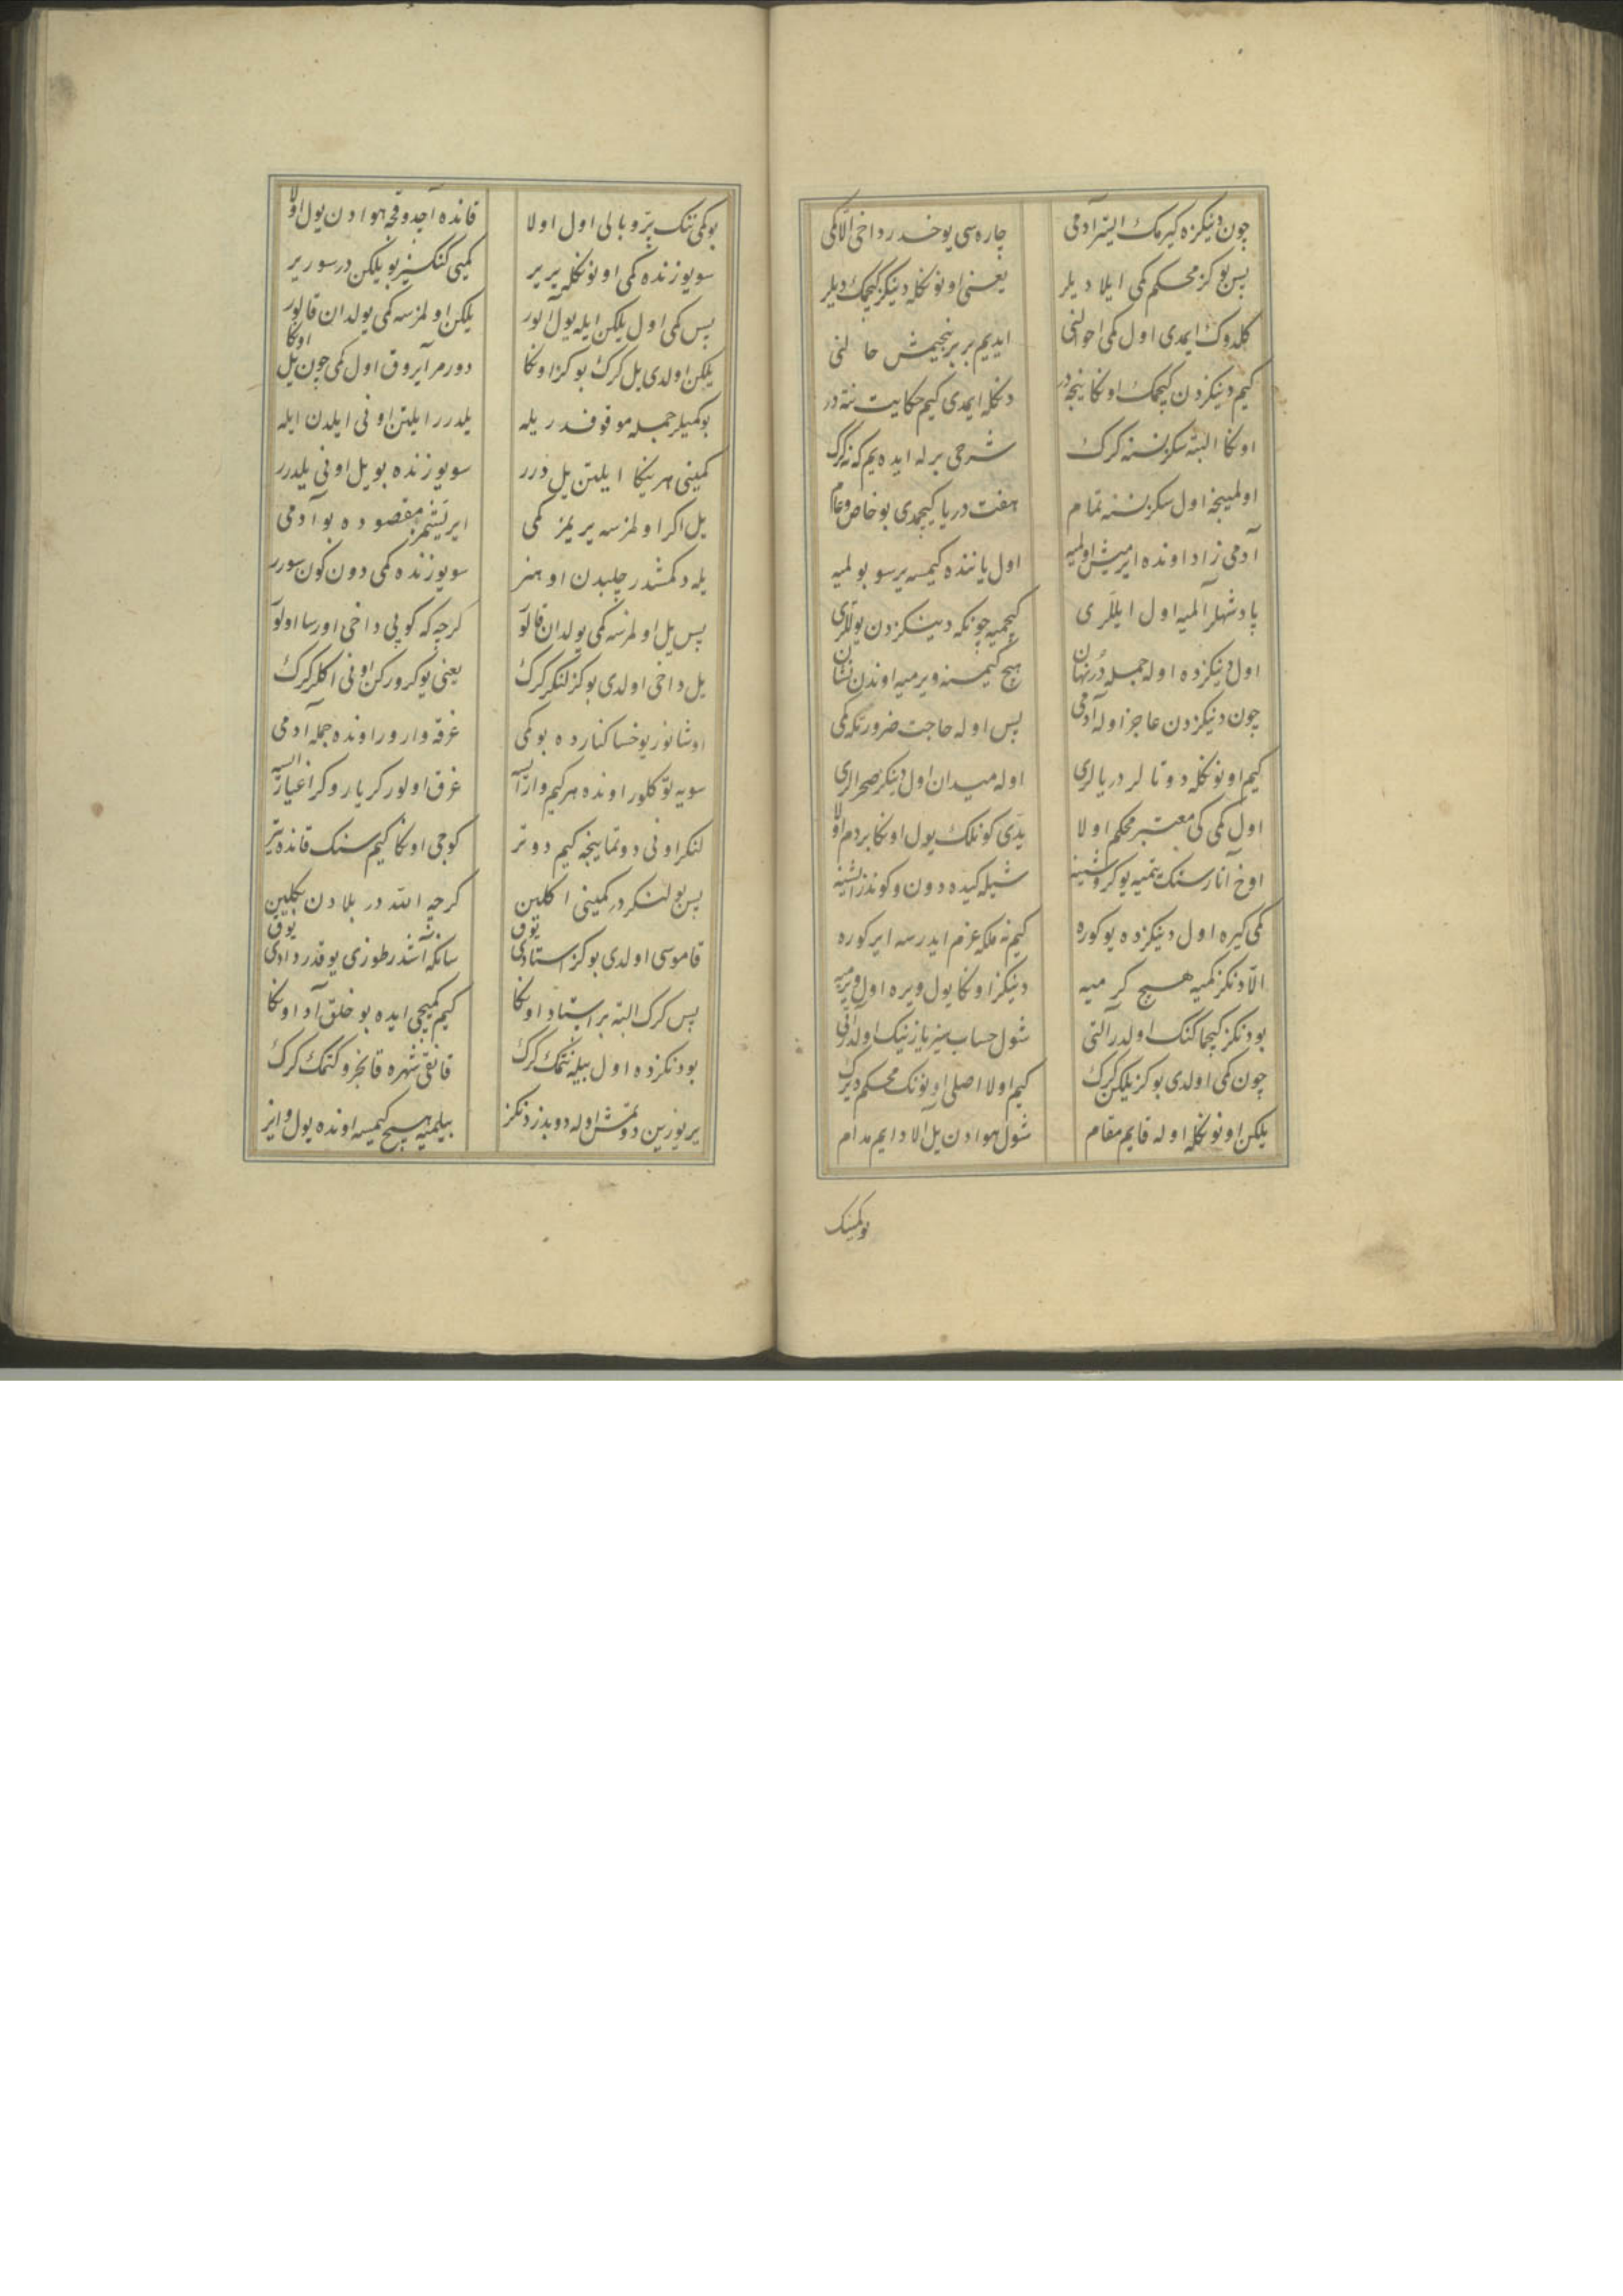 چون دینکزه کیرمک استر آدمی
چاره سی یوخدر داخی الّا کمی
پس بو کز محکم کمی ایلا دیلر
یعنی اونونکله دینکز کیچمک دیلر
کلدوک ایمدی اول کمی احوالنی
ایدیم بر بر نیجیمش حالنی
کیم دینکزدن کیچمک اونکا نیجه در
دنکله ایمدی کیم حکایت نته در
اونکا البته سکز نسنه کرک
شرحی برله ایده یم که نه کرک
اولمینجه اول سکز نسنه تمام
هفت دریا کیچمدی بو خاص و عام
آدمی زاد اونده ایرمیش اولمیه
اول یاننده کیمسه یرسو بولمیه
پادشهلر آلمیه اول ایللری
کیچمیه چونکه دینکزدن یوللری
اول دینکزده اوله جمله در نهان
هیچ کیمسنه ویرمیه اوندن نشان
چون دنیکزدن عاجز اوله آدمی
پس اوله حاجت ضرورتکه کمی
کیم اونونکله دوتالر دریالری
اوله میدان اول دینکز صحرالری
اول کمی کی معتبر محکم اولا
یدی کونلک یول اونکا بر دم اولا
اوخ آنارسنک یتمیه یوکروشینه
شیله کیده دون و کوندز ایشینه
کمی کیره اول دینکزده یوکوره
کیم نه ملکه عزم ایدرسه ایرکوره
الّا دنکز کمیه هیچ کرمیه
دینکز اونکا یول ویره اول ویرمیه
بو دنکز کیچماکنک اولدر آلتی
شول حساب سیز یازینک اولدر آتی
چون کمی اولدی بو کز یلکن کرک
کیم اولا اصلی اونونک محکم دیرک
یلکن اونونکله اوله قایم مقام
شول هوادن یل آلا دایم مدام
بو کمینک
بو کمی ننک پر و بالی اول اولا
قانده آچدوقجه هوادن یول اولا
سو یوزنده کمی اونونکله یریر
کمیی کنکسیز بو یلکن در سوریر
پس کمی اول یلکن ایله یول آلور
یلکن اولمزسه کمی یولدان قالور
یلکن اولدی یل کرک بو کز اونکا
دورمر آیروق اول کمی چون یل اونکا
بو کمیلر جمله موقوفدر یله
یلدرر ایلتن اونی ایلدن ایله
کمینی هر ینکا ایلتن یل درر
سو یوزنده بو یل اونی یلدرر
یل اکر اولمزسه یریمز کمی
ایریشمز مقصوده بو آدمی
یله دکمشدر چلبدن او هنر
سو یوزنده کمی دون کون سورر
پس یل اولمزسه کمی یولدان قالو
کرچه که کوپی داخی اورسا اولو
یل داخی اولدی بو کز لنکر کرک
یعنی یوکرورکن اونی اکلر کرک
اوشانور یوخسا کنارده بو کمی
غرقه وارور اونده جمله آدمی
سویه تو کلور اونده هر کیم وار ایسه
غرق اولور کر یار و کر اغیار ایسه
لنکر اونی دوتماینجه کیم دوتر
کوجی اونکا کیم سنک قانده یتر
پس بو لنکردر کمینی اکلین
کرچه الله در بلادن بکلین
قاموسی اولدی بو کز استادی یوق
سانکه آشدر طوزی یوقدر دادی یوق
پس کرک البته بر استاد اونکا
کیم کمیجی ایده بو خلق آد اونکا
بو دنکزده اول بیله نتمک کرک
قانقی شهره قانجرو کتمک کرک
یر یوزین دوتمش اوله دوبدز دنکز
بیلمیه هیچ کیمسه اونده یول و ایز